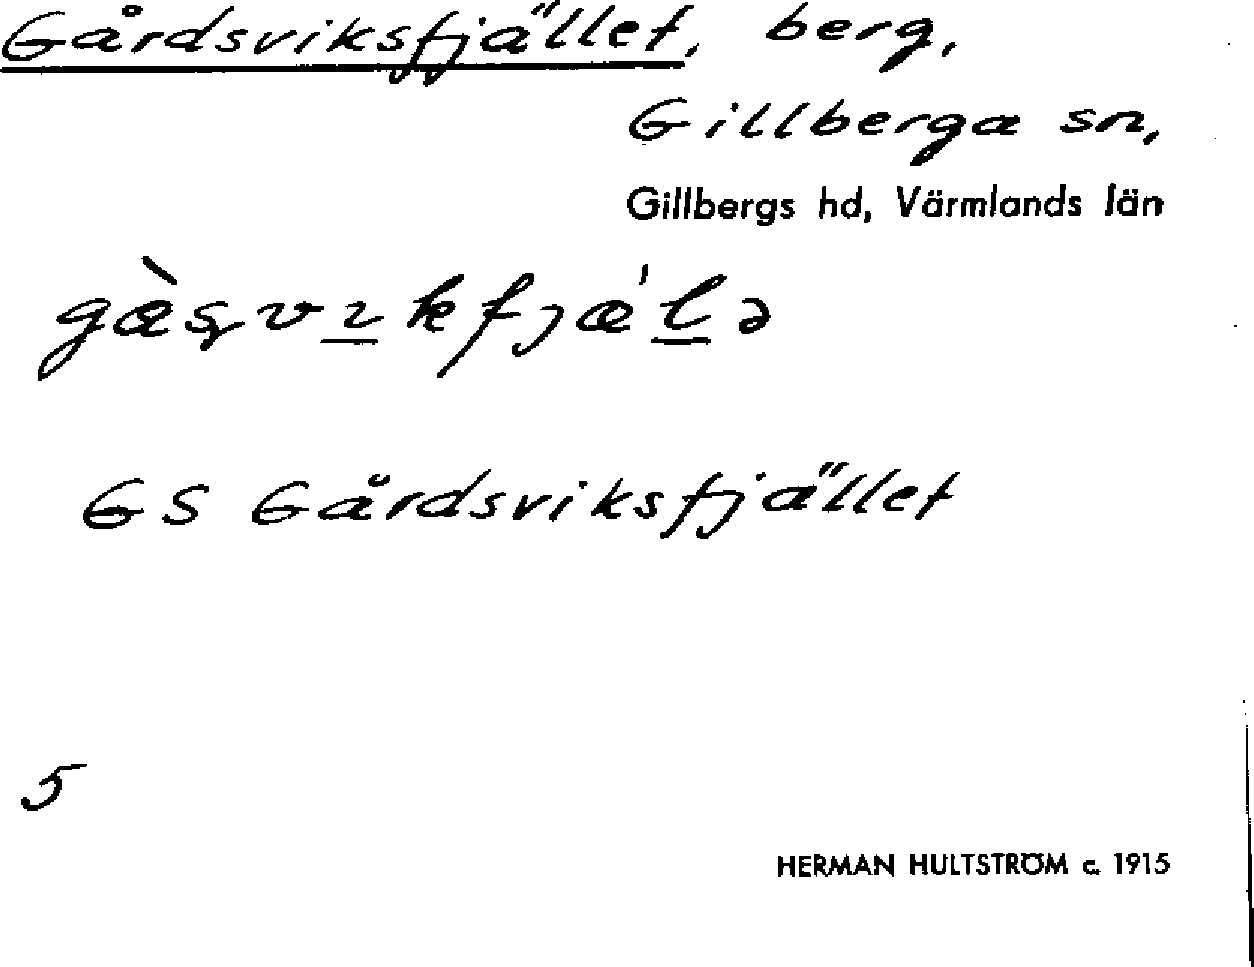 Gårdsviksfjället, berg,
Gillberga sn,
Gillbergs hd, Värmlands län
gæ̀ʂvɪkfjæ´lə
GS Gårdsviksfjället
5
HERMAN HULTSTRÖM c. 1915